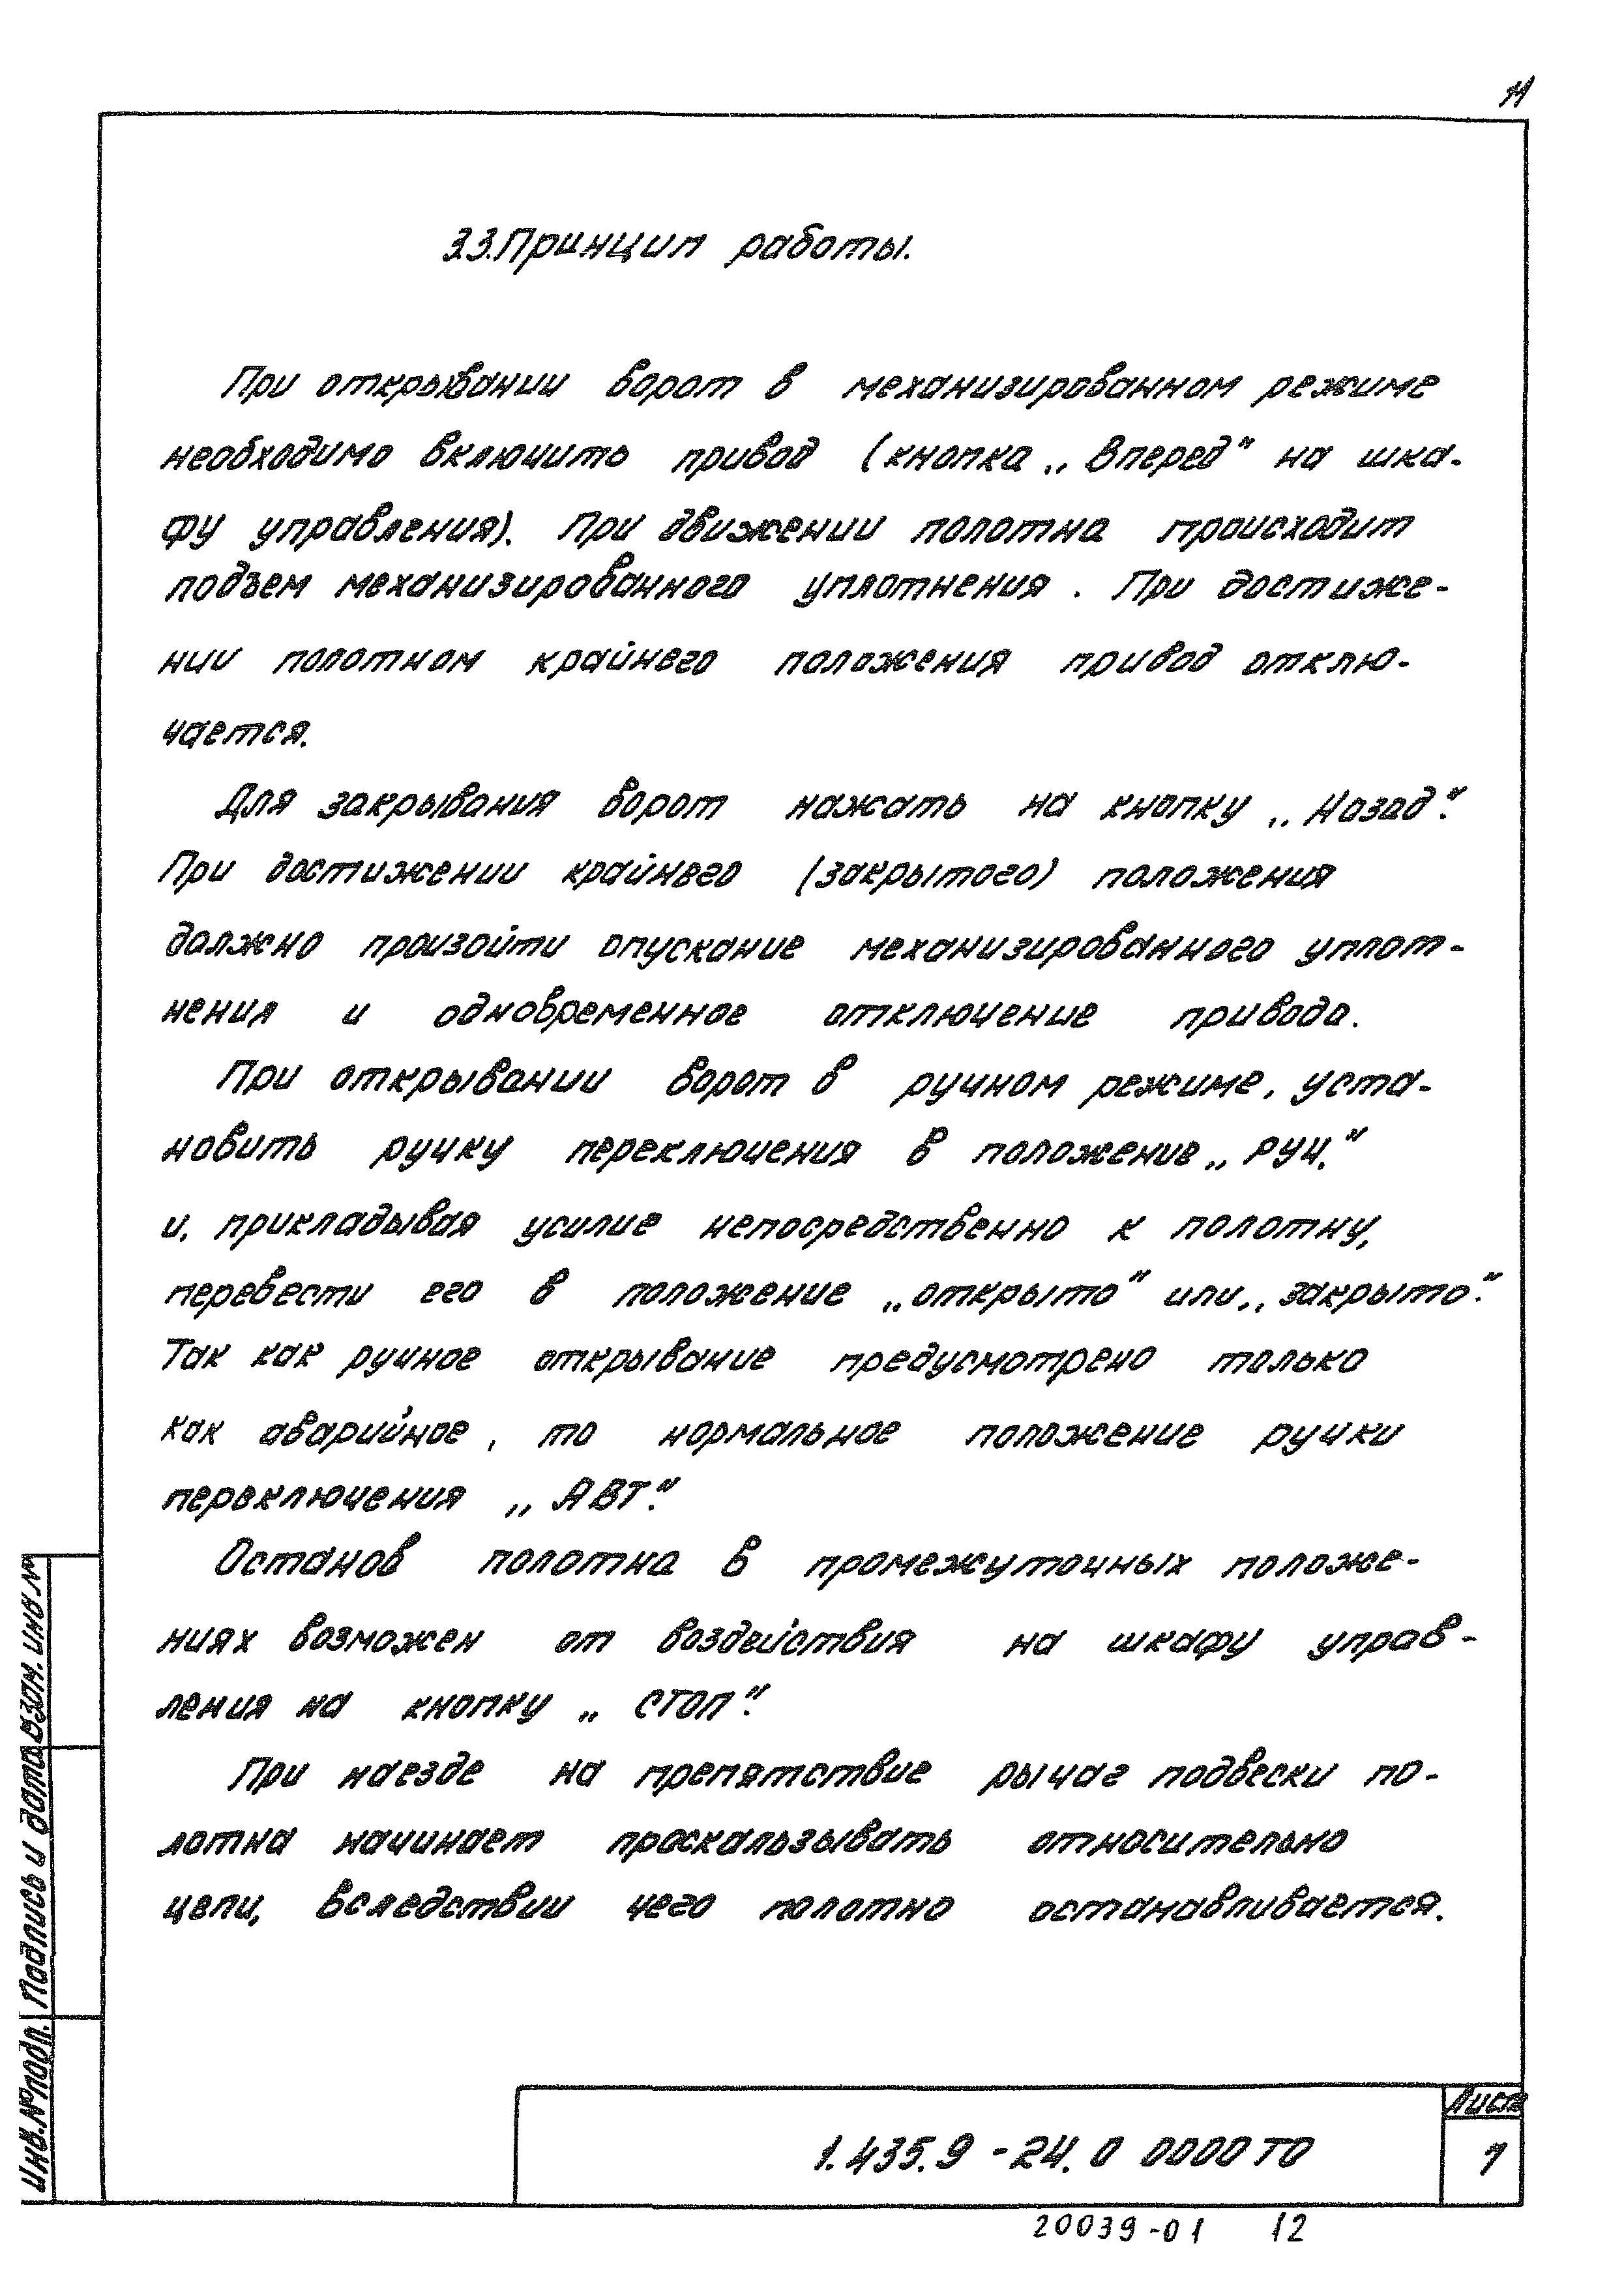 11
3.3. Принцип работы.
При открывании ворот в механизированном режиме
необходимо включить привод (кнопка „Вперед“ на шка-
фу управления). При движении полотна происходит
подъем механизированного уплотнения. При достиже-
нии полотном крайнего положения привод отклю-
чается.
Для закрывания ворот нажать на кнопку „Назад“.
При достижении крайнего (закрытого) положения
должно произойти опускание механизированного уплот-
нения и одновременное отключение привода.
При открывании ворот в ручном режиме, уста-
новить ручку переключения в положение „РУЧ.“
и, прикладывая усилие непосредственно к полотну,
перевести его в положение „открыто“ или „закрыто“.
Так как ручное открывание предусмотрено только
как аварийное, то нормальное положение ручки
переключения „АВТ“.
Останов полотна в промежуточных положе-
ниях возможен от воздействия на шкафу управ-
ления на кнопку „СТОП“.
При наезде на препятствие рычаг подвески по-
лотна начинает проскальзывать относительно
цепи, вследствии чего полотно останавливается.
Инв. № подл. Подпись и дата Взам. инв №
1.435.9-24.0 0000 ТО
Лист
7
20039-01 12